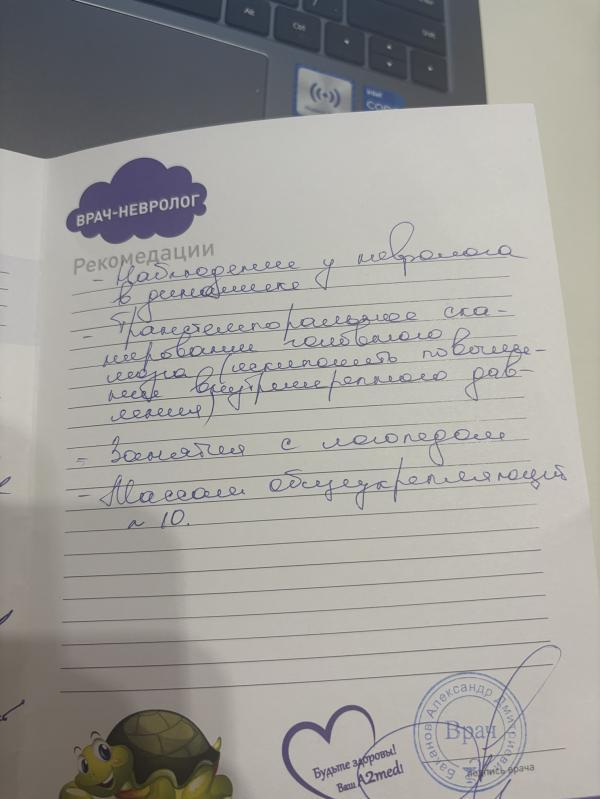 Alt
Ctrl
Shift
intel
CORE
ВРАЧ-НЕВРОЛОГ
Рекомедации
- Наблюдение у невролога
в динамике
- Транстемпоральное ска-
нирование головного
мозга (исключить повыше-
ние внутричерепного дав-
ления)
- Занятия с логопедом
- Массаж общеукрепляющий
№ 10.
Будьте здоровы!
Ваш A2med!
Александр Дмитриевич
Врач
подпись врача